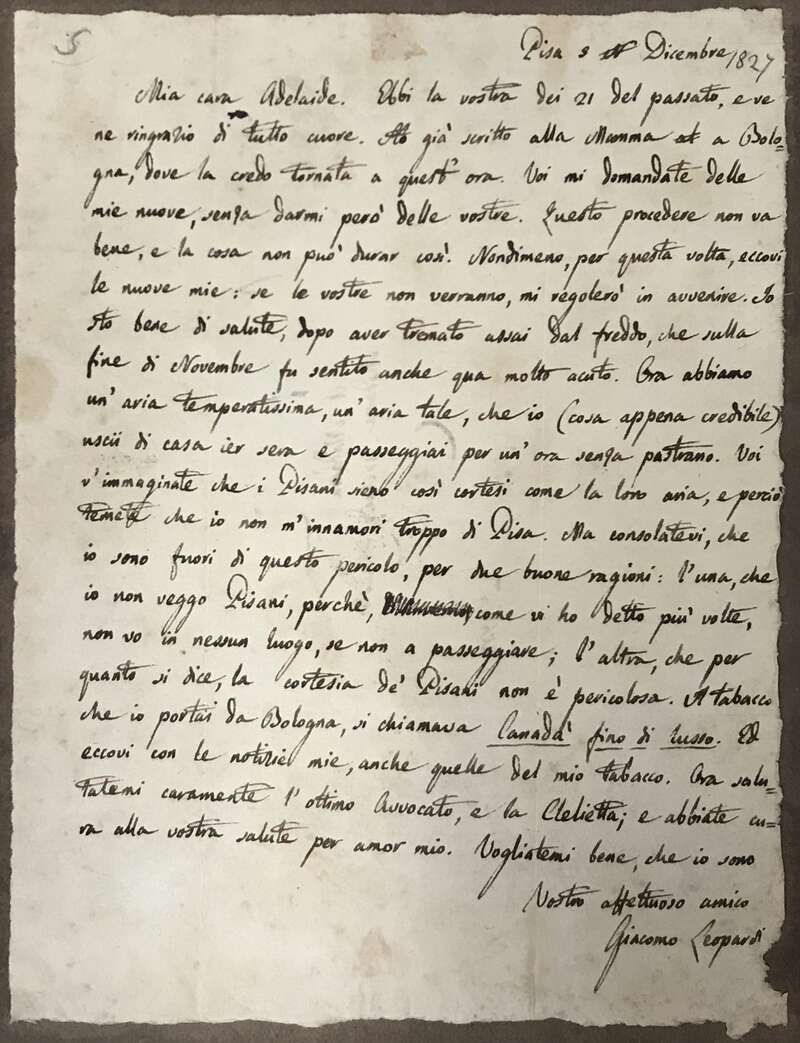 5
Pisa 5 Dicembre 1827
Mia cara Adelaide. Ebbi la vostra dei 21 del passato, e ve
ne ringrazio di tutto cuore. Ho già scritto alla Mamma a Bolo-
gna, dove la credo tornata a quest'ora. Voi mi domandate delle
mie nuove, senza darmi però delle vostre. Questo procedere non va
bene, e la cosa non può durar così. Nondimeno, per questa volta, eccovi
le nuove mie: se le vostre non verranno, mi regolerò in avvenire. Io
sto bene di salute, dopo aver tremato assai dal freddo, che sulla
fine di Novembre fu sentito anche qua molto acuto. Ora abbiamo
un'aria temperatissima, un'aria tale, che io (cosa appena credibile)
uscii di casa ier sera e passeggiai per un'ora senza pastrano. Voi
v'immaginate che i Pisani sieno così cortesi come la loro aria, e perciò
temete che io non m'innamori troppo di Pisa. Ma consolatevi, che
io sono fuori di questo pericolo, per due buone ragioni: l'una, che
io non veggo Pisani, perchè, come vi ho detto più volte,
non vo in nessun luogo, se non a passeggiare; l'altra, che per
quanto si dice, la cortesia de' Pisani non è pericolosa. Il tabacco
che io portai da Bologna, si chiamava Canadà fino di lusso. Ed
eccovi con le notizie mie, anche quelle del mio tabacco. Ora salu-
tatemi caramente l'ottimo Avvocato, e la Clelietta; e abbiate cu-
ra alla vostra salute per amor mio. Vogliatemi bene, che io sono
Vostro affettuoso amico
Giacomo Leopardi